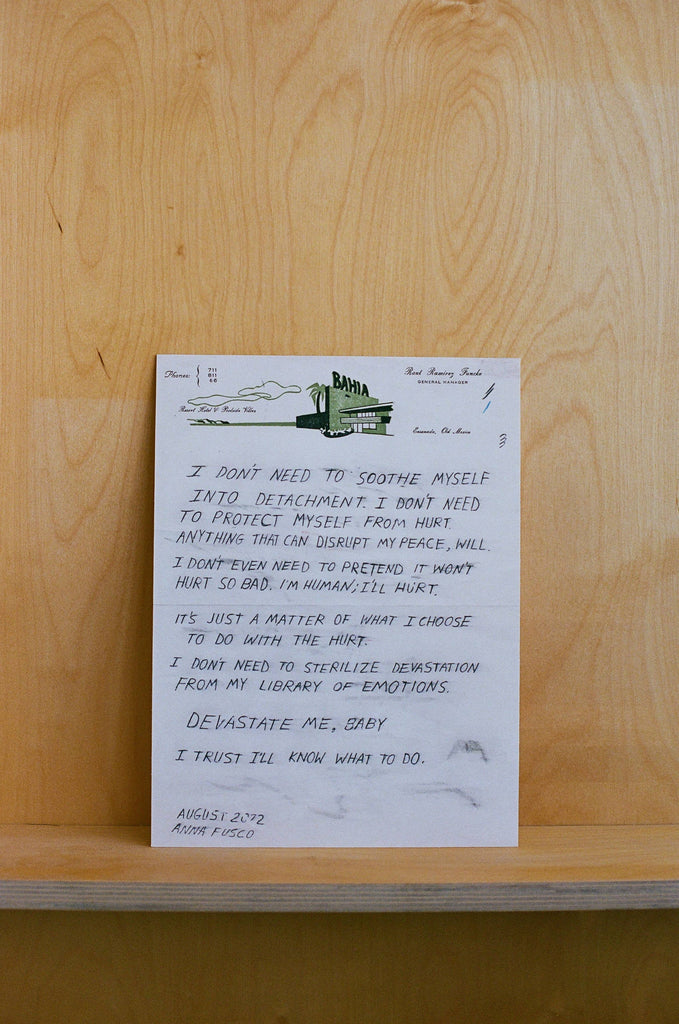 Phones:
711
811
66
BAHIA
René Ramírez Funcke
GENERAL MANAGER
Resort Hotel & Poolside Villas
Ensenada, Old Mexico
I DON'T NEED TO SOOTHE MYSELF
INTO DETACHMENT. I DON'T NEED
TO PROTECT MYSELF FROM HURT.
ANYTHING THAT CAN DISRUPT MY PEACE, WILL.
I DON'T EVEN NEED TO PRETEND IT WON'T
HURT SO BAD. I'M HUMAN; I'LL HURT.
IT'S JUST A MATTER OF WHAT I CHOOSE
TO DO WITH THE HURT.
I DON'T NEED TO STERILIZE DEVASTATION
FROM MY LIBRARY OF EMOTIONS.
DEVASTATE ME, BABY
I TRUST I'LL KNOW WHAT TO DO.
AUGUST 2022
ANNA FUSCO